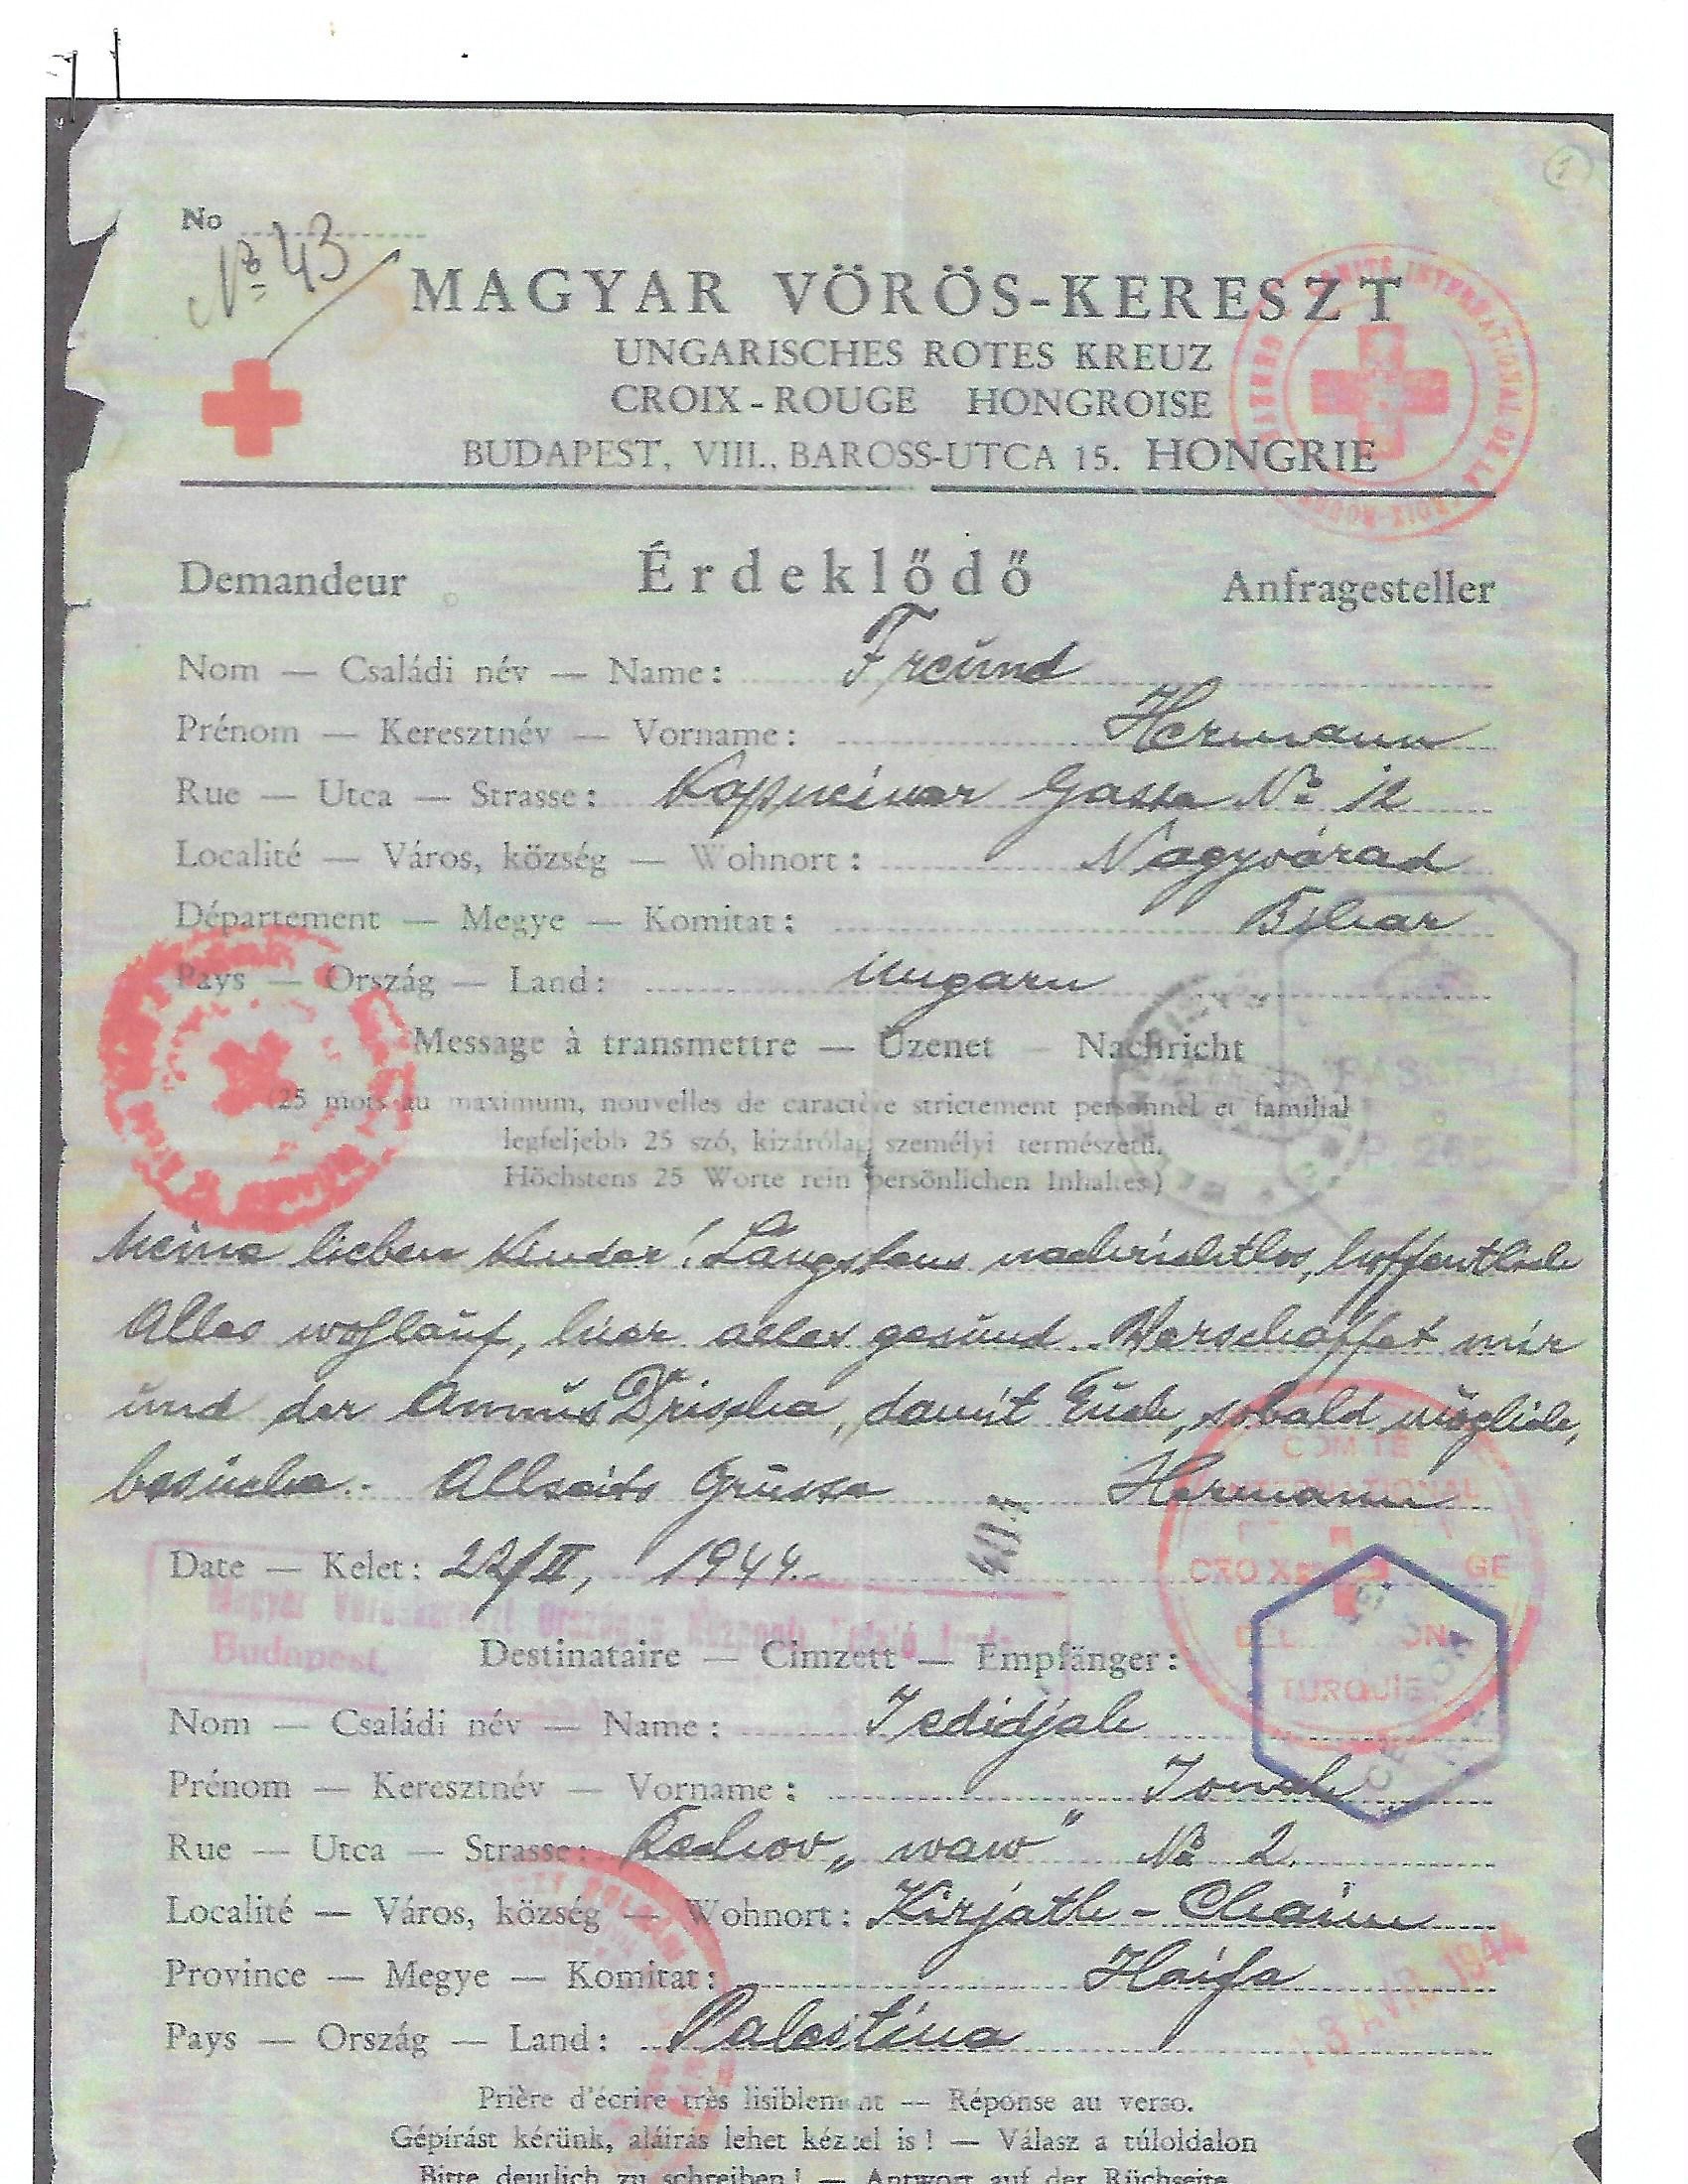 1
No
No 43
MAGYAR VÖRÖS-KERESZT
UNGARISCHES ROTES KREUZ
CROIX-ROUGE HONGROISE
BUDAPEST, VIII., BAROSS-UTCA 15. HONGRIE
COMITÉ INTERNATIONAL DE LA CROIX-ROUGE GENÈVE
Demandeur Érdeklődő Anfragesteller
Nom — Családi név — Name: Freund
Prénom — Keresztnév — Vorname: Hermann
Rue — Utca — Strasse: Gasse No 12
Localité — Város, község — Wohnort: Nagyvárad
Département — Megye — Komitat: Bihar
Pays — Ország — Land: Ungarn
Message à transmettre — Üzenet — Nachricht
(25 mots au maximum, nouvelles de caractère strictement personnel et familial
legfeljebb 25 szó, kizárólag személyi természetű,
Höchstens 25 Worte rein persönlichen Inhaltes)
Meine lieben Kinder! Längstens nachrichtlos, hoffentlich
Alles wohlauf, hier alles gesund. Verschaffet mir
und der damit Euch, sobald möglich,
besuche. Allseits Grüsse Hermann
Date — Kelet: 22/II, 1944.
Magyar Vöröskereszt Országos Központi
Budapest.
COMITÉ
INTERNATIONAL
CROIX GE
TURQUIE
Destinataire — Cimzett — Empfänger:
Nom — Családi név — Name: Jedidjah
Prénom — Keresztnév — Vorname: Jonah
Rue — Utca — Strasse: Rechov „waw" No 2.
Localité — Város, község — Wohnort: Kirjath-Chaim
Province — Megye — Komitat: Haifa
13 AVR 1944
Pays — Ország — Land: Palestina
Prière d'écrire très lisiblement — Réponse au verso.
Gépírást kérünk, aláírás lehet kézzel is! — Válasz a túloldalon
Bitte deutlich zu schreiben! — Antwort auf der Rückseite